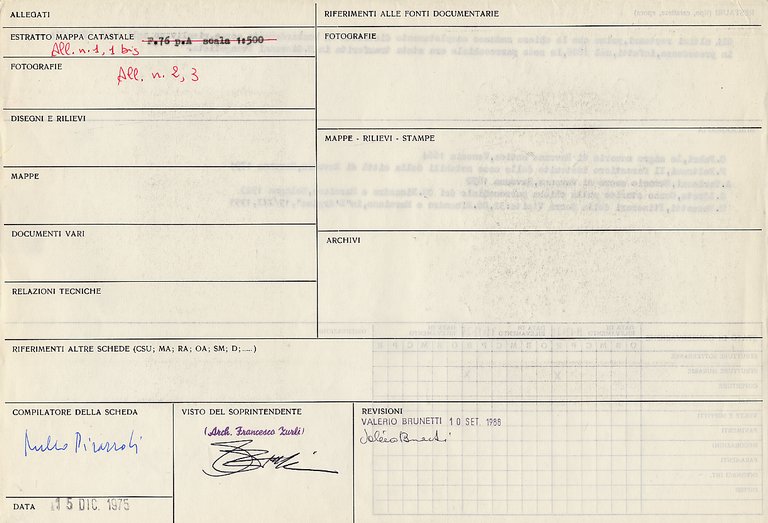 ALLEGATI
ESTRATTO MAPPA CATASTALE F.76 p.A scala 1:500
All. n. 1, 1 bis
FOTOGRAFIE
All. n. 2, 3
DISEGNI E RILIEVI
MAPPE
DOCUMENTI VARI
RELAZIONI TECNICHE
RIFERIMENTI ALLE FONTI DOCUMENTARIE
FOTOGRAFIE
MAPPE - RILIEVI - STAMPE
ARCHIVI
RIFERIMENTI ALTRE SCHEDE (CSU; MA; RA; OA; SM; D;.....)
COMPILATORE DELLA SCHEDA
DATA 15 DIC. 1975
VISTO DEL SOPRINTENDENTE
(Arch. Francesco Zurli)
REVISIONI
VALERIO BRUNETTI 10 SET. 1986
Valerio Brunetti